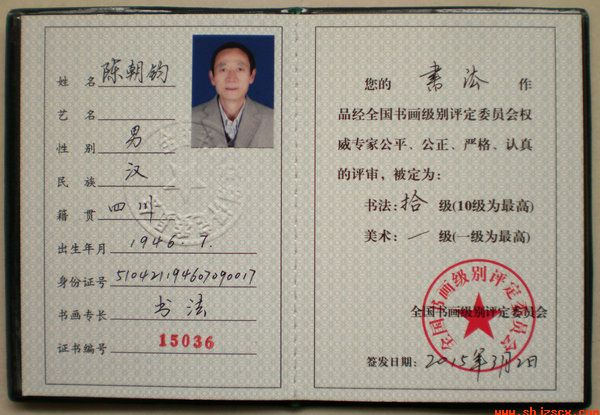 姓 名 陈朝钧
艺 名
性 别 男
民 族 汉
籍 贯 四川
出生年月 1946.7.
身份证号 510421194607090017
书画专长 书法
证书编号 15036
您的 书法 作
品经全国书画级别评定委员会权
威专家公平、公正、严格、认真
的评审，被定为：
书法：拾 级(10级为最高)
美术：一 级(一级为最高)
全国书画级别评定委员会
全国书画级别评定委员会
签发日期：2015年3月2日
www.shjzscx.com